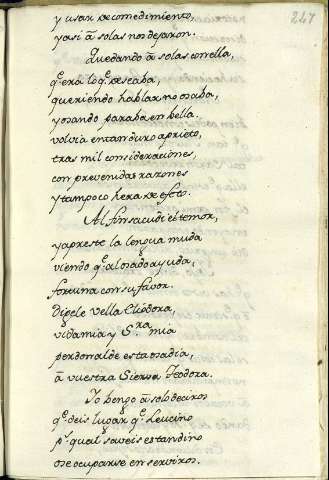 247
y usar de comedimiento,
y asi â solas nos dejaron.
Quedando â solas con ella,
q.e era lo q.e deseaba,
queriendo hablar no osaba,
y osando paraba en bella.
volvia en tan duro aprieto,
tras mil consideraciones,
con prevenidas razones
y tampoco hera de efeto.
Al fin sacudi el temor,
y apreste la lengua muda
viendo q.e al osado ayuda,
fortuna con su favor.
Digele vella Cliodora,
vida mia y S.ra mia
perdonad esta osadia,
â vuestra Sierva Teodora.
Io bengo â solo deciros
q.e deis lugar q.e Leucino
p.r qual saveis es tan dino
se ocupar se en serviros.